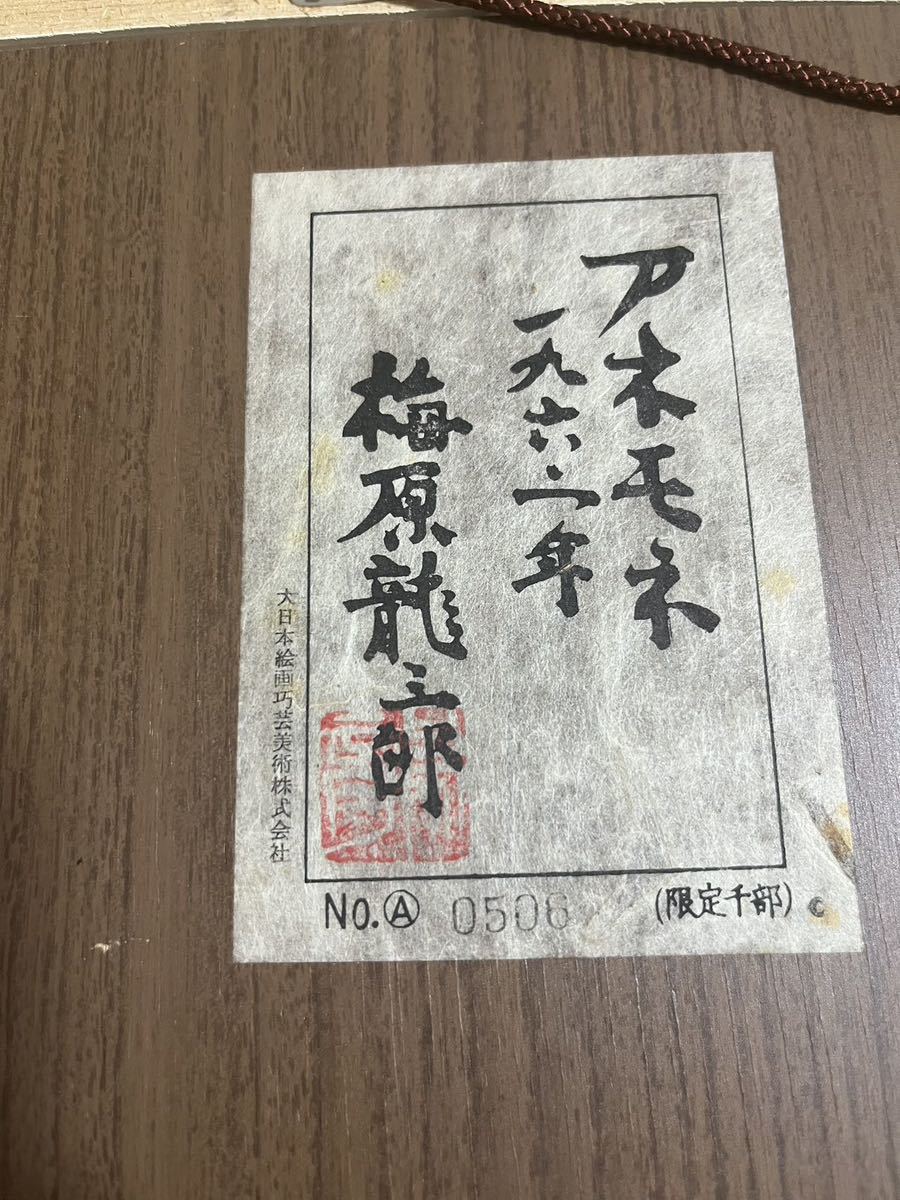 アネモネ
一九六二年
梅原龍三郎
大日本絵画巧芸美術株式会社
No.Ⓐ 0506 (限定千部) ©